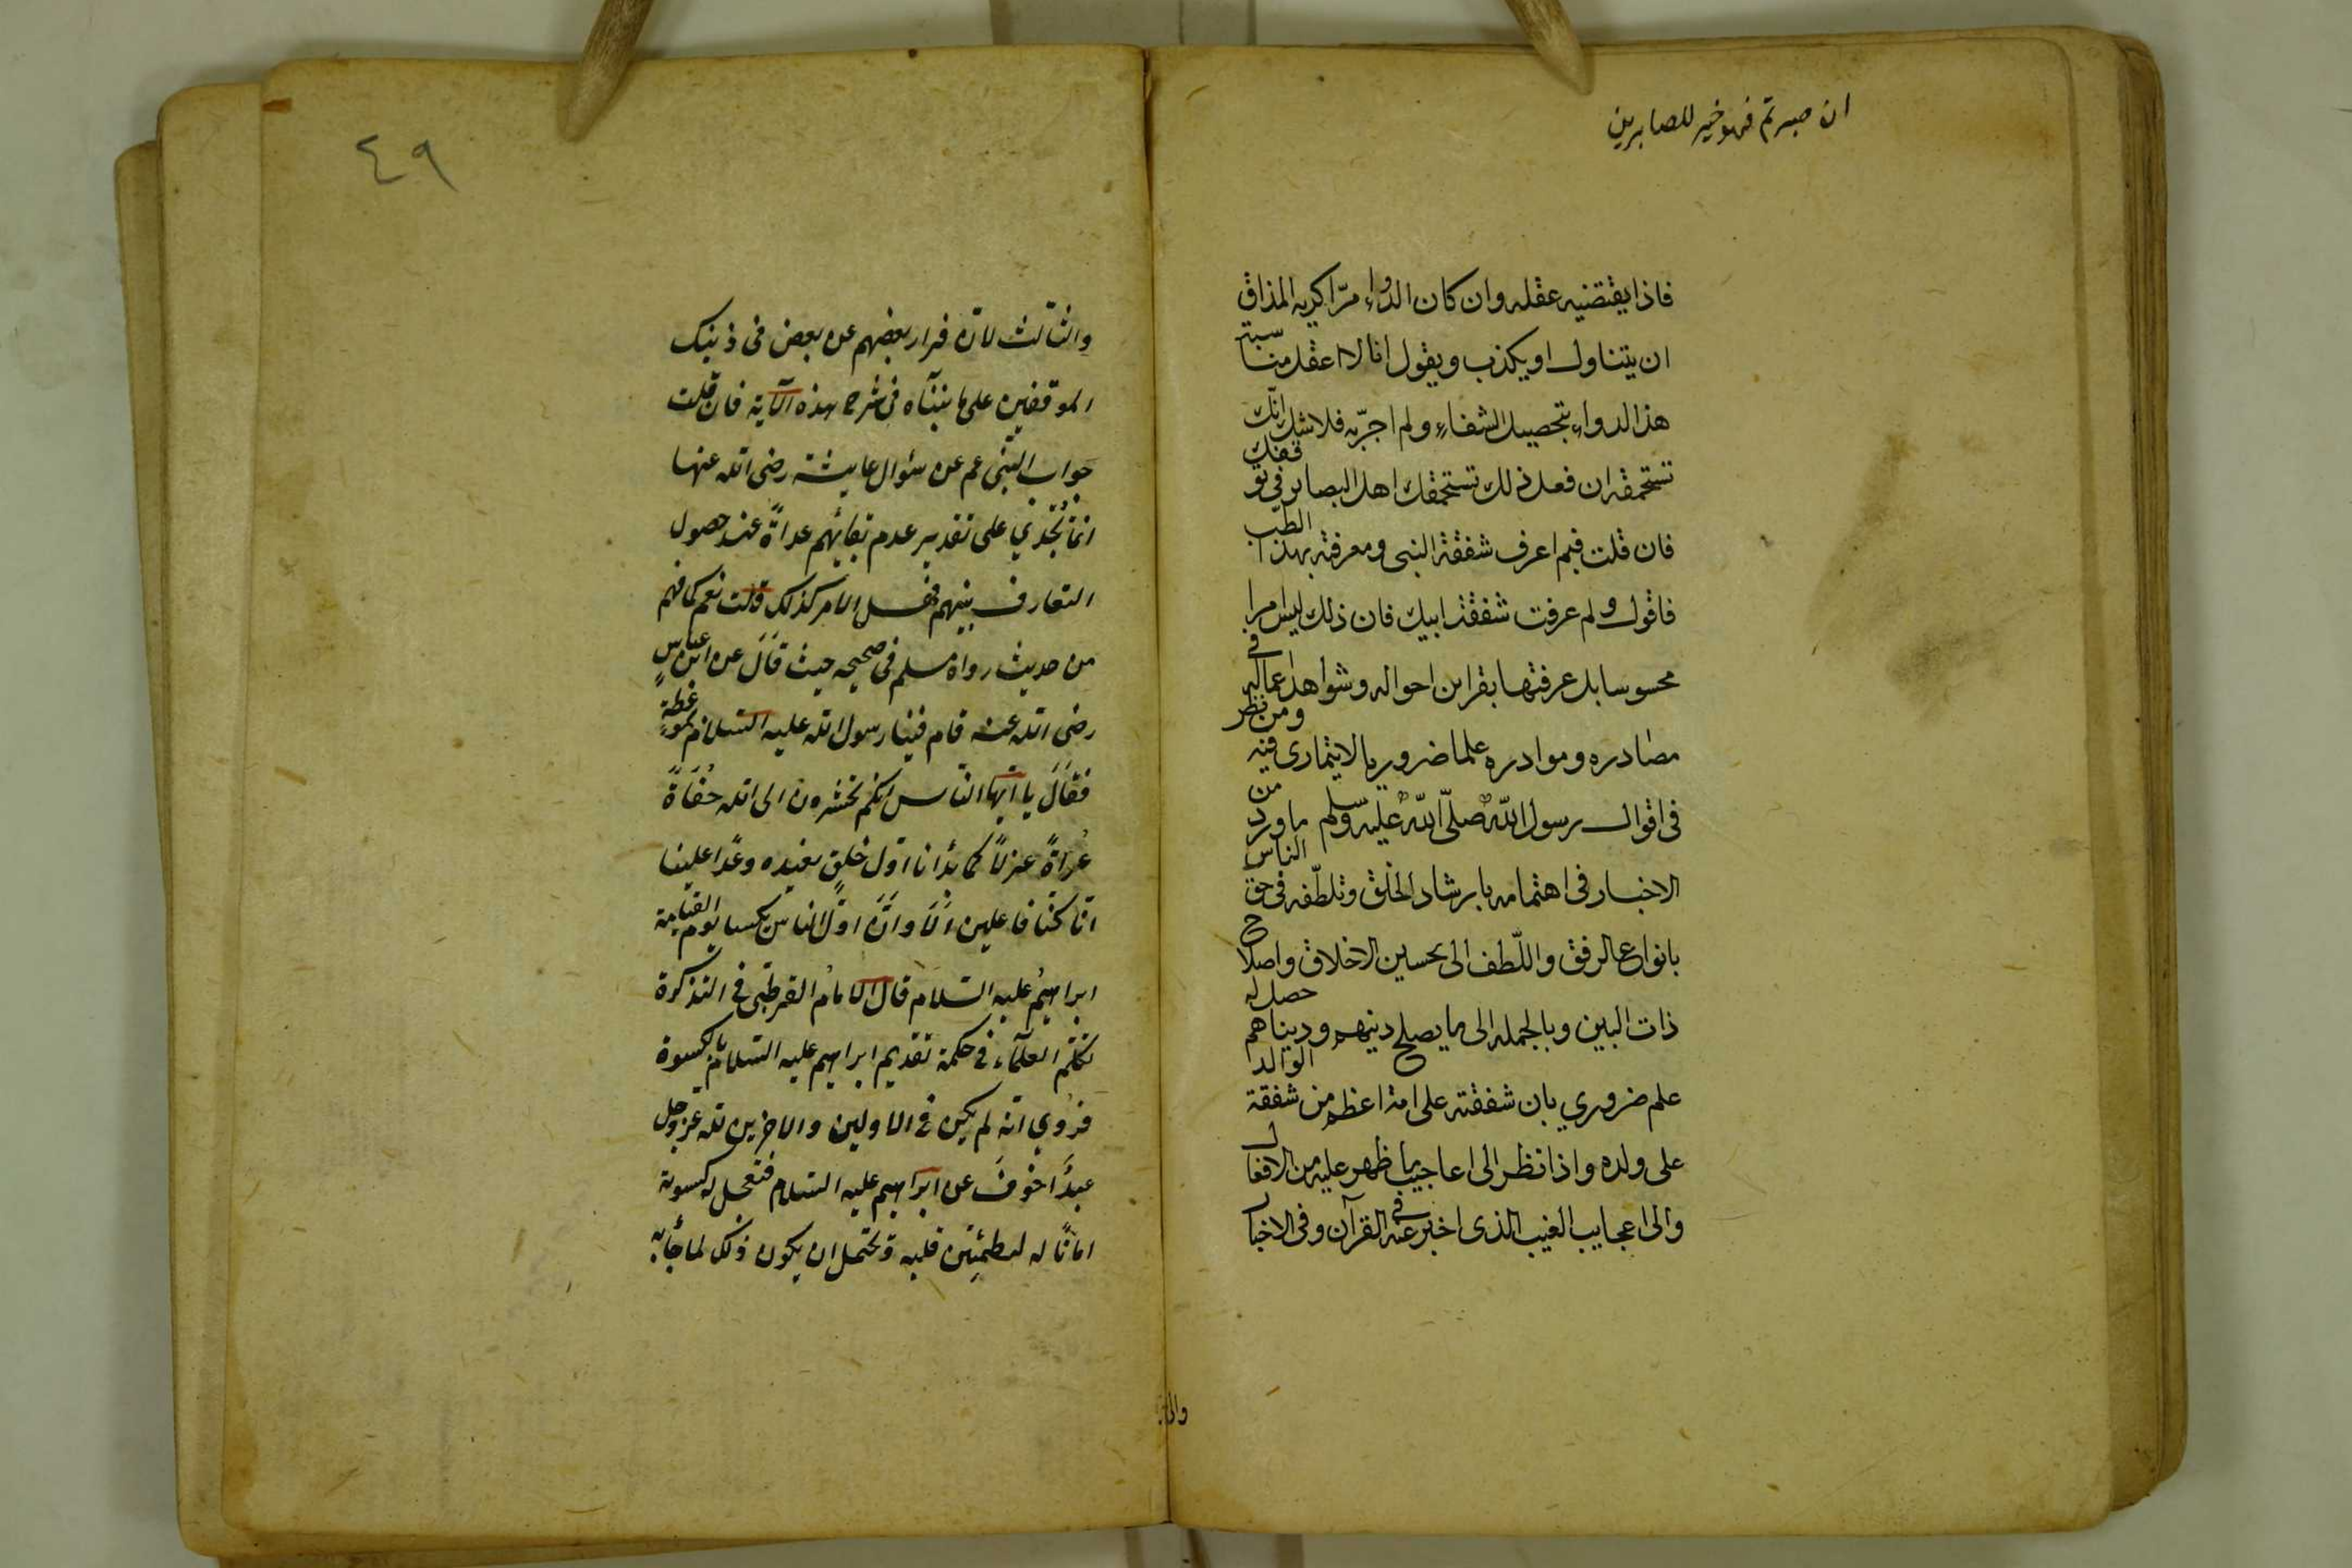 ان صبرتم فهو خير للصابرين
فاذا يقتضيه عقله وان كان الدواء مرّا كريه المذاق
ان يتناول او يكذب ويقول انا لا اعقل مناسبة
هذا الدواء بتحصيل الشفاء ولم اجرّبه فلا شك انك
تستحمقه ان فعل ذلك تستحمقك اهل البصاير في توقفك
فان قلت فبم اعرف شفقة النبى ومعرفته بهذا الطبّ
فاقول وبم عرفت شفقة ابيك فان ذلك ليس امرا
محسوسا بل عرفتها بقراين احواله وشواهد اعماله في
مصادره وموادره علما ضروريا لا يتمارى فيه ومن نظر
فى اقوال رسول اللّه صلّى اللّه عليه وسلم ما ورد من
الاخبار فى اهتمامه بارشاد الخلق وتلطّفه فى حق الناس
بانواع الرفق واللّطف الى تحسين الاخلاق واصلاح
ذات البين وبالجمله الى ما يصلح دينهم وديناهم حصل له
علم ضروري بان شفقته على امته اعظم من شفقة الوالد
على ولده واذا نظر الى اعاجيب ما ظهر عليه من الافعال
والى اعجايب الغيب الذى اخبر عنه فى القرآن وفى الاخبار
والى
٤٩
والثالث لانّ فرار بعضهم عن بعض فى ذينك
الموقفين على ما بينّاه فى شرح هذه الآية فان قلت
جواب النبى عم عن سئوال عايشة رضى الله عنها
انما تجدي على تقدير عدم بقائهم عراةً عند حصول
التعارف بينهم فهل الامر كذلك قلت نعم كما فهم
من حديث رواه مسلم فى صحيحه حيث قال عن ابن عباسٍ
رضى الله عنه قام فينا رسول الله عليه السّلام بموعظةٍ
فقال يا ايّها النّاس انّكم تحشرون الى الله حفاةً
عُراةً غرلاً كما بدأنا اوّل خلقٍ نعيده وعدًا علينا
انّا كنّا فاعلين ألا وانّ اوّل الناس يكسا يوم القيامة
ابراهيمُ عليه السّلام قال الامامُ القرطبّى فى التذكرة
تكلّم العلمآء فى حكمة تقديم ابراهيم عليه السّلام بالكسوة
فرُوي انّه لم يكن فى الاولين والاخرين لله عز وجل
عبدًا اخوفَ عن ابراهيم عليه السلام فتعجل له كسوته
امانًا له ليطمئِن قلبه ويحتمل ان يكون ذلك لما جأ به